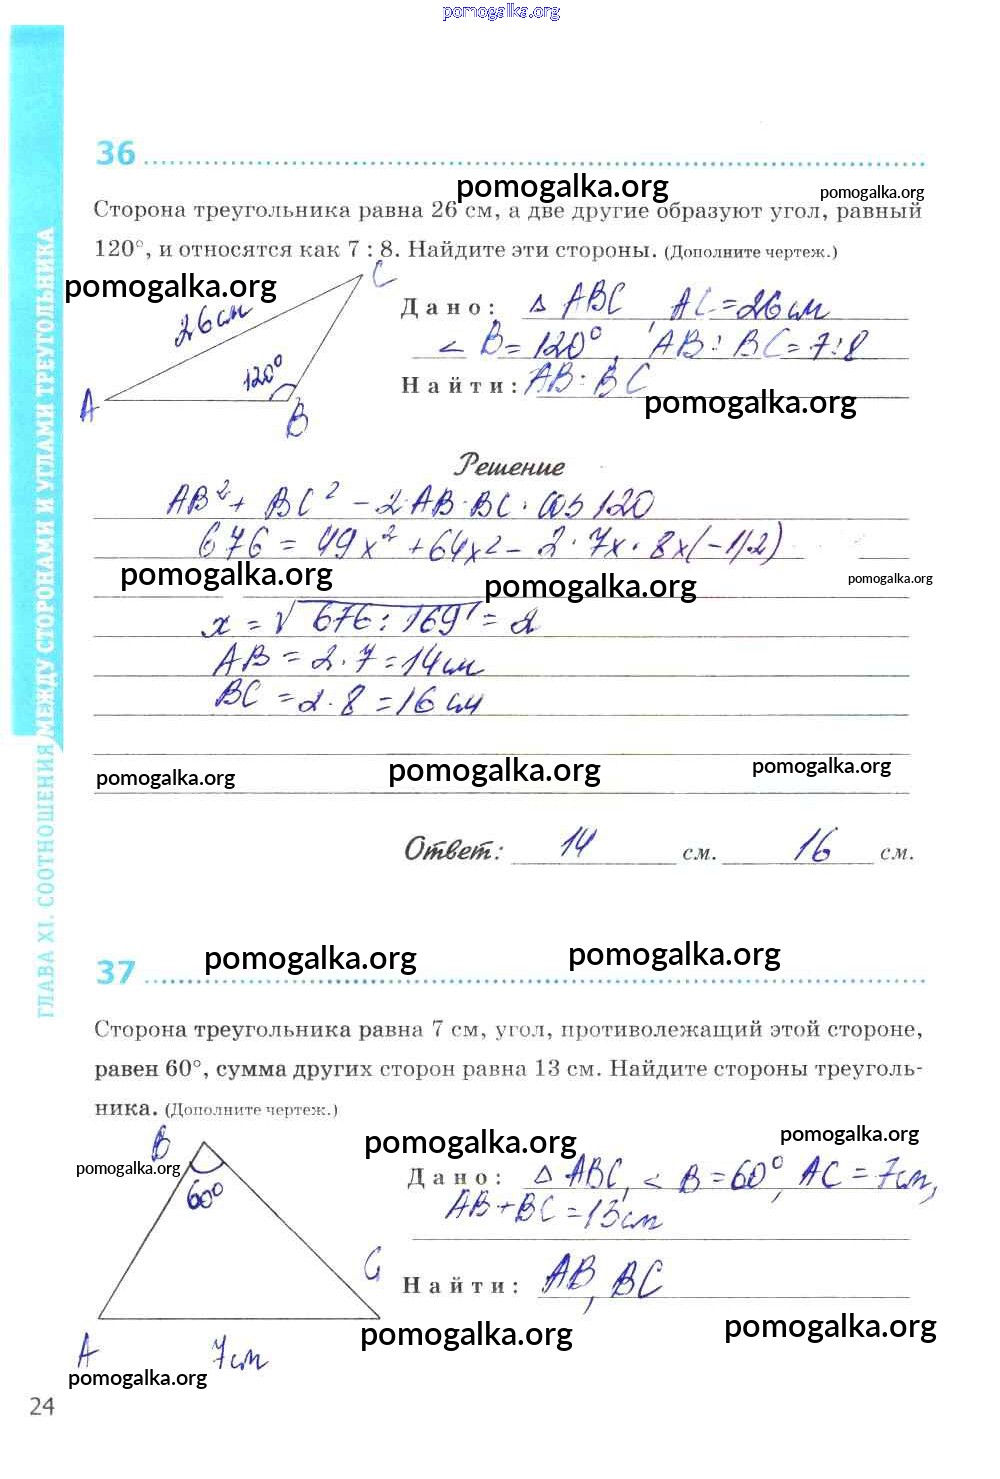 pomogalka.org
36
pomogalka.org
pomogalka.org
Сторона треугольника равна 26 см, а две другие образуют угол, равный
120°, и относятся как 7 : 8. Найдите эти стороны. (Дополните чертеж.)
pomogalka.org
C
26 см
120°
A
B
Дано: Δ ABC, AC = 26 см
∠ B = 120°, AB : BC = 7:8
Найти: AB : BC
pomogalka.org
Решение
AB² + BC² - 2·AB·BC·cos 120
676 = 49x² + 64x² - 2·7x·8x(-1/2)
pomogalka.org
pomogalka.org
pomogalka.org
x = √676:169 = 2
AB = 2·7 = 14 см
BC = 2·8 = 16 см
pomogalka.org
pomogalka.org
pomogalka.org
Ответ: 14 см. 16 см.
ГЛАВА XI. СООТНОШЕНИЯ МЕЖДУ СТОРОНАМИ И УГЛАМИ ТРЕУГОЛЬНИКА
pomogalka.org
pomogalka.org
37
Сторона треугольника равна 7 см, угол, противолежащий этой стороне,
равен 60°, сумма других сторон равна 13 см. Найдите стороны треуголь-
ника. (Дополните чертеж.)
pomogalka.org
pomogalka.org
pomogalka.org
B
60°
C
A
7 см
Дано: Δ ABC, ∠ B = 60°, AC = 7 см,
AB + BC = 13 см
Найти: AB, BC
pomogalka.org
pomogalka.org
pomogalka.org
24